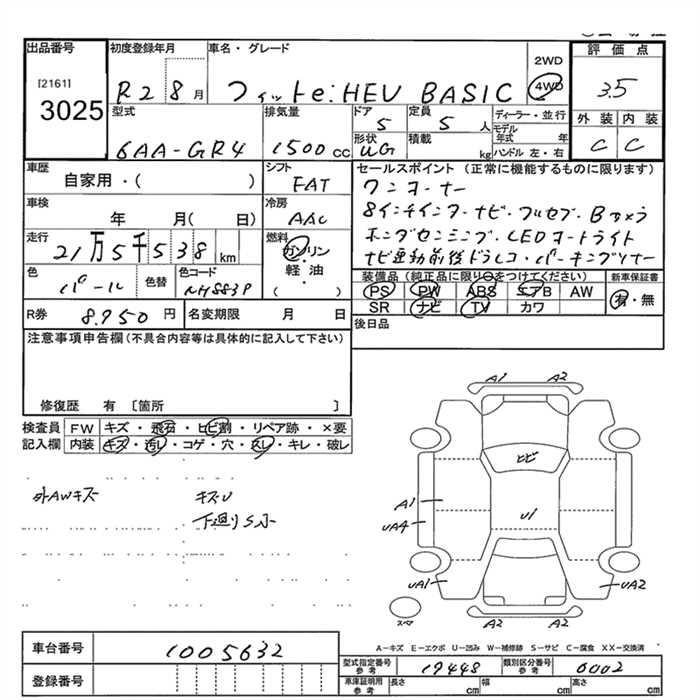 出品番号
[2161]
3025
初度登録年月
R2 8 月
車名・グレード
フィットe:HEV BASIC
2WD
4WD
評価点
3.5
外装 内装
C C
型式
6AA-GR4
排気量
1500 cc
ドア
5
定員
5 人
形状
UG
積載
kg
ディーラー・並行
モデル年式 年
ハンドル 左・右
車歴
自家用・( )
シフト
FAT
セールスポイント (正常に機能するものに限ります)
ワンオーナー
8インチインターナビ・フルセグ・Bカメラ
ホンダセンシング・LEDオートライト
ナビ連動前後ドラレコ・パーキングソナー
車検
年 月( 日)
冷房
AAC
走行
21万5千538 km
燃料
ガソリン
・
軽油
( )
色
パール
色替
色コード
NH883P
装備品 (純正品に限り○をつけてください)
新車保証書
PS PW ABS エアB AW
有・無
SR ナビ TV カワ
R券
8.950 円
名変期限 月 日
後日品
注意事項申告欄 (不具合内容等は具体的に記入して下さい)
修復歴 有 〔箇所 〕
検査員
記入欄
FW キズ・飛石・ヒビ割・リペア跡・×要
内装 キズ・汚レ・コゲ・穴・スレ・キレ・破レ
外AWキズ
キズU
下廻りSホ
A1 A2
ヒビ
A1
UA4
U1
UA1
UA2
スペア
A1 A2
A-キズ E-エクボ U-凹み W-補修跡 S-サビ C-腐食 XX-交換済
車台番号
1005632
登録番号
型式指定番号
参考
19448
類別区分番号
参考
0002
車庫証明用
参考
長さ cm
幅 cm
高さ cm